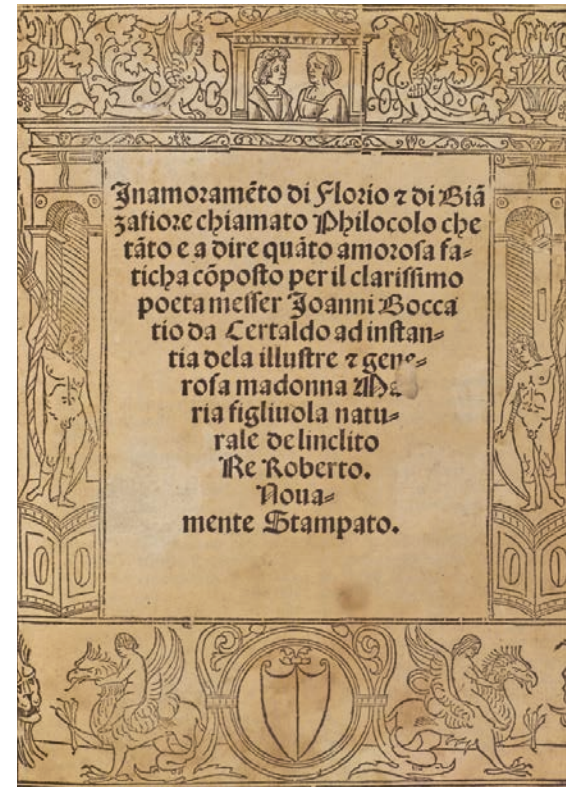 Inamoramēto di Florio ⁊ di Biā
zafiore chiamato Philocolo che
tāto e a dire quāto amorosa fa⸗
ticha cōposto per il clarissimo
poeta messer Joanni Bocca
tio da Certaldo ad instan⸗
tia dela illustre ⁊ gene⸗
rosa madonna
ria figliuola natu⸗
rale de linclito
Re Roberto.
Noua⸗
mente Stampato.